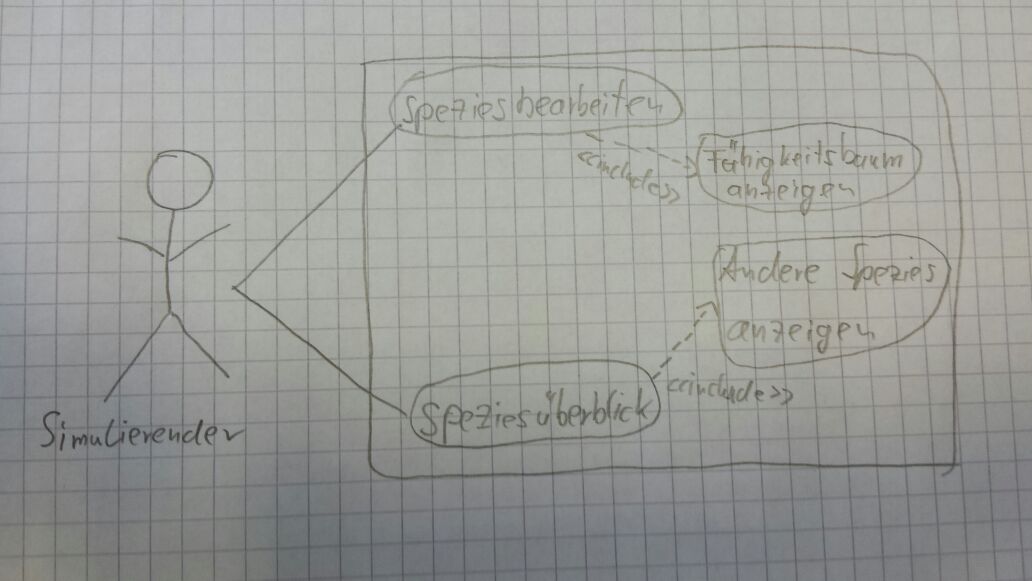 Spezies bearbeiten
<<include>>
Fähigkeitsbaum
anzeigen
Andere Spezies
anzeigen
<<include>>
Speziesüberblick
Simulierender